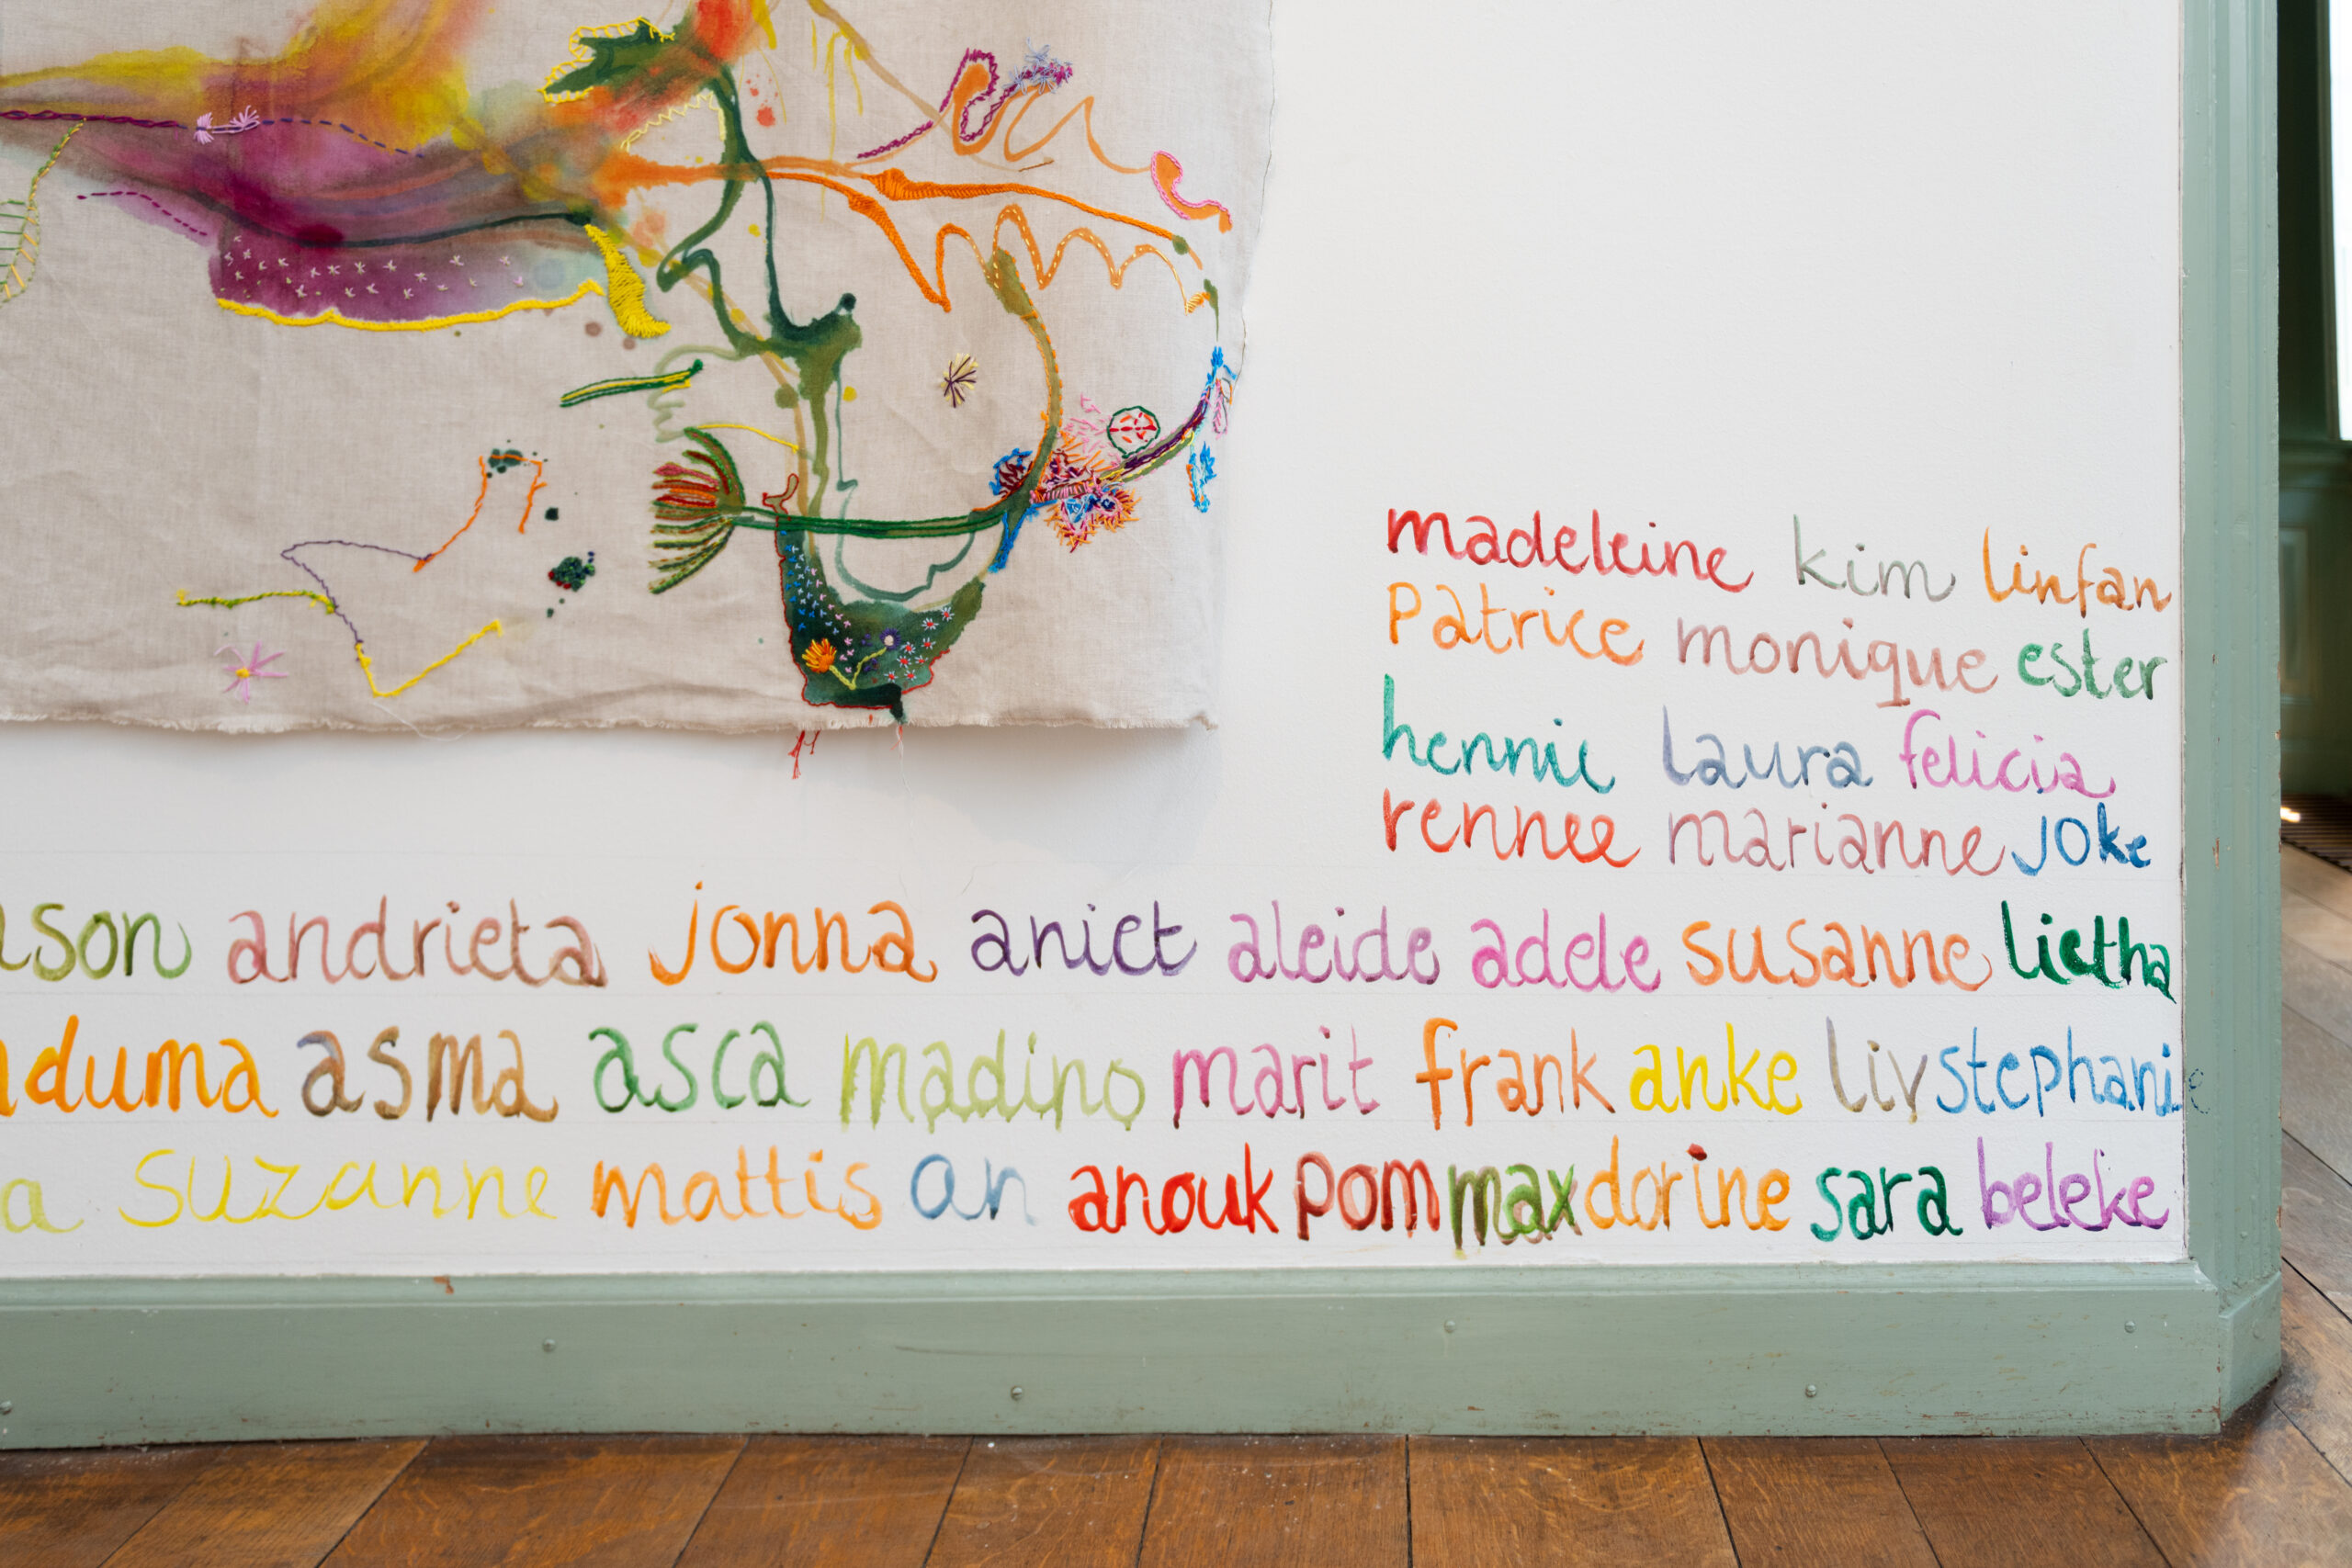 madeleine kim linfan
Patrice monique ester
hennie laura felicia
rennee marianne joke
ason andrieta jonna aniet aleide adele susanne lietha
duma asma asca madino marit frank anke liv stephanie
a suzanne mattis an anouk pom max dorine sara beleke